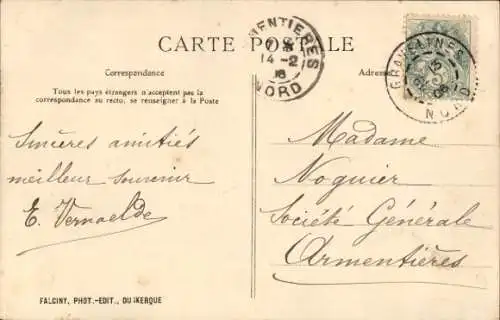 CARTE POSTALE
MENTIERES
14-2
NORD
GRAVELINES
15
06
NORD
Correspondance
Adresse
Tous les pays étrangers n'acceptent pas la
correspondance au recto, se renseigner à la Poste
Sincères amitiés
meilleur souvenir
E. Vernaelde
Madame
Noguier
Société Générale
Armentières
FALCINY, PHOT.-EDIT., DUNKERQUE